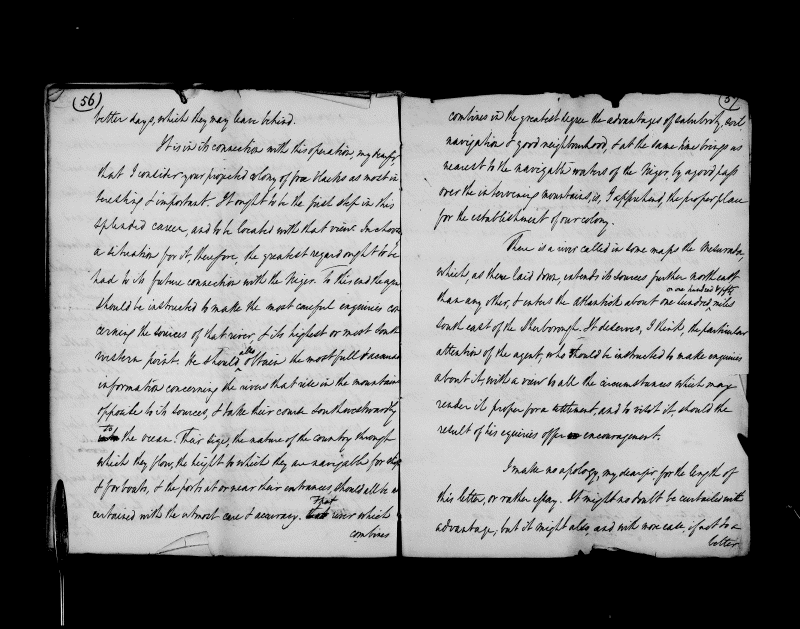 (56)
better days, which they may leave behind.
It is in its connection with this operation, my dear sir,
that I consider your projected colony of free blacks as most in
teresting & important. It ought to be the first step in this
splendid career, and to be located with that view. In choosing
a situation for it, therefore, the greatest regard ought to be
had to its future connection with the Niger. To this end the agent
should be instructed to make the most careful enquiries con
cerning the sources of that river, & its highest or most south
western point. He should also obtain the most full & accurate
information concerning the rivers that rise in the mountains
opposite to its sources, & take their course southwestwardly
to the ocean. Their size, the nature of the country through
which they flow, the height to which they are navigable for ships
& for boats, & the ports at or near their entrances, should all be as
certained with the utmost care & accuracy. That river which
combines
combines in the greatest degree the advantages of salubrity, soil
navigation & good neighbourhood, & at the same time brings us
nearest to the navigable waters of the Niger, by a good pass
over the intervening mountains, is, I apprehend, the proper place
for the establishment of our colony.
There is a river called in some maps the Mesurada,
which, as there laid down, extends its sources further northeast
than any other, & enters the atlantick about one hundred or one hundred & fifty miles
south east of the Sherborough. It deserves, I think, the particular
attention of the agent, who should be instructed to make enquiries
about it, with a view to all the circumstances which may
render it proper for a settlement, and to visit it, should the
result of his equiries offer encouragement.
I make no apology, my dear sir, for the length of
this letter, or rather essay. It might no doubt be curtailed with
advantage, but it might also, and with more ease, if not to a
better